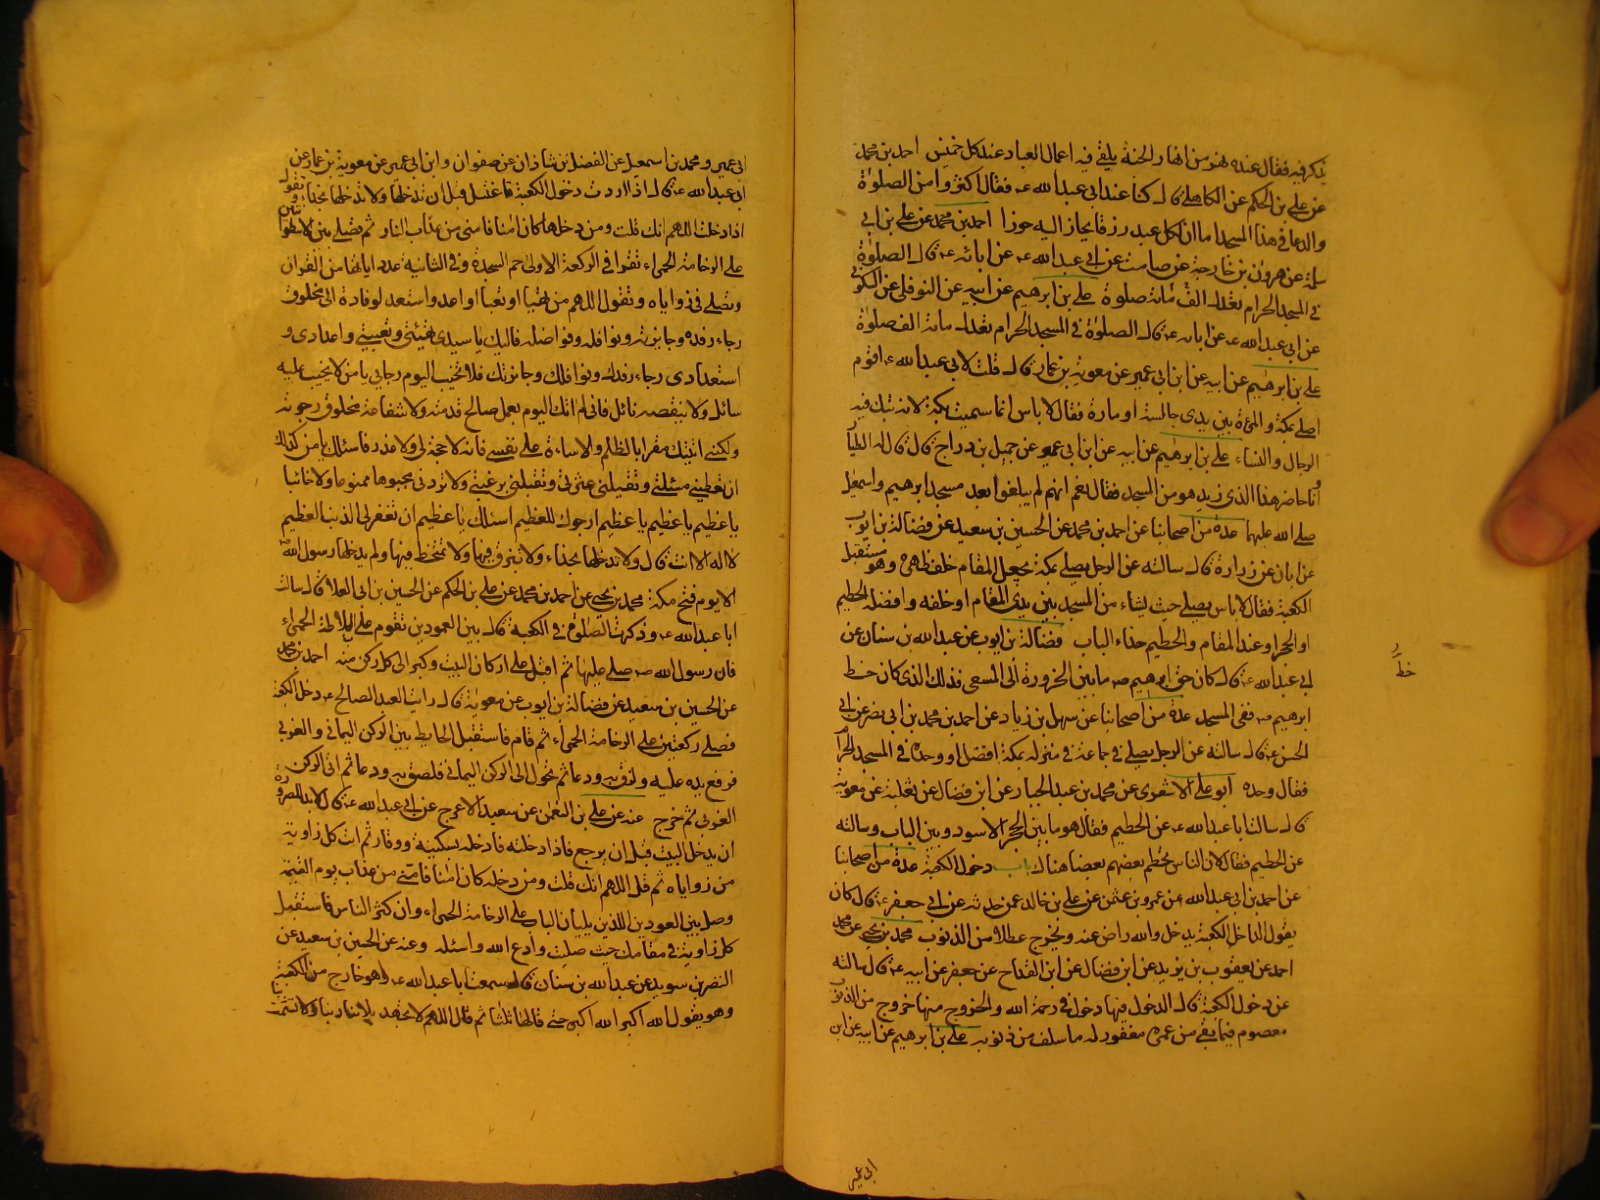 يذكر فيه فقال عنده نهر من انهار الجنة يلقى فيه اعمال العباد عند كل خميس احمد بن محمد
عن علي بن الحكم عن الكاهلي قال كنا عند ابي عبد الله ع فقال اكثروا من الصلوة
والدعا في هذا المسجد اما ان لكل عبد رزقا يحاز اليه حوزا احمد بن محمد عن علي بن ابي
سلمة عن هرون بن خارجة عن صامت عن ابي عبد الله ع عن ابائه ع قال الصلوة
في المسجد الحرام تعدل الف مائة صلوة علي بن ابرهيم عن ابيه عن النوفلي عن السكوني
عن ابي عبد الله ع عن ابائه ع قال الصلوة في المسجد الحرام تعدل مائة الف صلوة
علي بن ابرهيم عن ابيه عن ابن ابي عمير عن معوية بن عمار قال قلت لابي عبد الله ع اقوم
اصلي بمكة والمرءة بين يدي جالسة او مارة فقال لا باس انما سميت بكة لانه تبك فيه
الرجال والنساء علي بن ابرهيم عن ابيه عن ابن ابي عمير عن جميل بن دراج قال قال له الطيار
وانا حاضر هذا الذي زيد هو من المسجد فقال نعم انهم لم يبلغوا بعد مسجد ابرهيم واسمعيل
صلى الله عليهما عدة من اصحابنا عن احمد بن محمد عن الحسين بن سعيد عن فضالة بن ايوب
عن ابان عن زرارة قال سالته عن الرجل يصلي بمكة يجعل المقام خلف ظهره وهو مستقبل
الكعبة فقال لا باس يصلي حيث يشاء من المسجد بين يدي المقام او خلفه وافضله الحطيم
او الحجر او عند المقام والحطيم حذاء الباب فضالة بن ايوب عن عبد الله بن سنان عن
ابي عبد الله ع قال كان حق ابرهيم ص ما بين الحزورة الى المسعى فذلك الذي كان خط
ابرهيم ص ففي المسجد عدة من اصحابنا عن سهل بن زياد عن احمد بن محمد بن ابي نصر عن ابي
الحسن ع قال سالته عن الرجل يصلي في جماعة في منزله بمكة افضل او وحده في المسجد الحرام
فقال وحده ابو علي الاشعري عن محمد بن عبد الجبار عن ابن فضال عن ثعلبة عن معوية
قال سالت ابا عبد الله ع عن الحطيم فقال هو ما بين الحجر الاسود وبين الباب وسالته
عن الحطيم فقال لان الناس يحطم بعضهم بعضا هناك باب دخول الكعبة عدة من اصحابنا
عن احمد بن ابي عبد الله عن عمرو بن عثمن عن علي بن خالد عمن حدثه عن ابي جعفر ع قال كان
يقول الداخل الكعبة يدخل والله راض عنه ويخرج عطلا من الذنوب محمد بن يحيى عن محمد
احمد عن يعقوب بن يزيد عن ابن فضال عن ابن القداح عن جعفر عن ابيه ع قال سالته
عن دخول الكعبة قال الدخول فيها دخول في رحمة الله والخروج منها خروج من الذنوب
معصوم فيما بقي من عمره مغفور له ما سلف من ذنوبه علي بن ابرهيم عن ابيه عن ابن
خط
ابي عمير
ابي عمير ومحمد بن اسمعيل عن الفضل بن شاذان عن صفوان وابن ابي عمير عن معوية بن عمار عن
ابي عبد الله ع قال اذا اردت دخول الكعبة فاغتسل قبل ان تدخلها ولا تدخلها بحذا وتقول
اذا دخلت اللهم انك قلت ومن دخلها كان امنا فامني من عذاب النار ثم تصلي بين الاسطوانتين
على الرخامة الحمراء تقرا في الركعة الاولى حم السجدة وفي الثانية عدد اياتها من القران
وتصلي في زواياه وتقول اللهم من تهيا او تعبا او اعد واستعد لوفادة الى مخلوق
رجاء رفده وجايزته ونوافله وفواضله فاليك يا سيدي تهيئتي وتعبيتي واعدادي و
استعدادي رجاء رفدك ونوافلك وجائزتك فلا تخيب اليوم رجايي يا من لا يخيب عليه
سائل ولا ينقصه نائل فاني لم اتك اليوم بعمل صالح قدمته ولا شفاعة مخلوق رجوته
ولكني اتيتك مقرا بالظلم والاساءة على نفسي فانه لا حجة لي ولا عذر فاسئلك يا من هو كذلك
ان تعطيني مسئلتي وتقيلني عثرتي وتقبلني برغبتي ولا تردني مجبوها ممنوعا ولا خائبا
يا عظيم يا عظيم يا عظيم ارجوك للعظيم اسئلك يا عظيم ان تغفر لي الذنب العظيم
لا اله الا انت قال ولا تدخلها بحذاء ولا تبزق فيها ولا تمتخط فيها ولم يدخلها رسول الله ص
الا يوم فتح مكة محمد بن يحيى عن احمد بن محمد عن علي بن الحكم عن الحسين بن ابي العلا قال سالت
ابا عبد الله ع وذكرت الصلوة في الكعبة قال بين العمودين تقوم على البلاطة الحمراء
فان رسول الله ص صلى عليها ثم اقبل على اركان البيت وكبر الى كل ركن منه احمد بن محمد
عن الحسين بن سعيد عن فضالة بن ايوب عن معوية قال رايت العبد الصالح ع دخل الكعبة
فصلى ركعتين على الرخامة الحمراء ثم قام فاستقبل الحايط بين الركن اليماني والغربي
فرفع يده عليه ولزق به ودعا ثم تحول الى الركن اليماني فلصق به ودعا ثم اتى الركن
الغربي ثم خرج عنه عن علي بن النعمن عن سعيد الاعرج عن ابي عبد الله ع قال لا بد للصرورة
ان يدخل البيت قبل ان يرجع فاذا دخلته فادخله بسكينة ووقار ثم ائت كل زاوية
من زواياه ثم قل اللهم انك قلت ومن دخله كان امنا فامني من عذاب يوم القيمة
وصل بين العمودين اللذين يليان الباب على الرخامة الحمراء وان كثر الناس فاستقبل
كل زاوية في مقامك حيث صليت وادع الله واسئله وعنه عن الحسين بن سعيد عن
النضر بن سويد عن عبد الله بن سنان قال سمعت ابا عبد الله ع وهو خارج من الكعبة
وهو يقول الله اكبر الله اكبر حتى قالها ثلثا ثم قال اللهم لا تجهد بلائنا ربنا ولا تشمت بنا